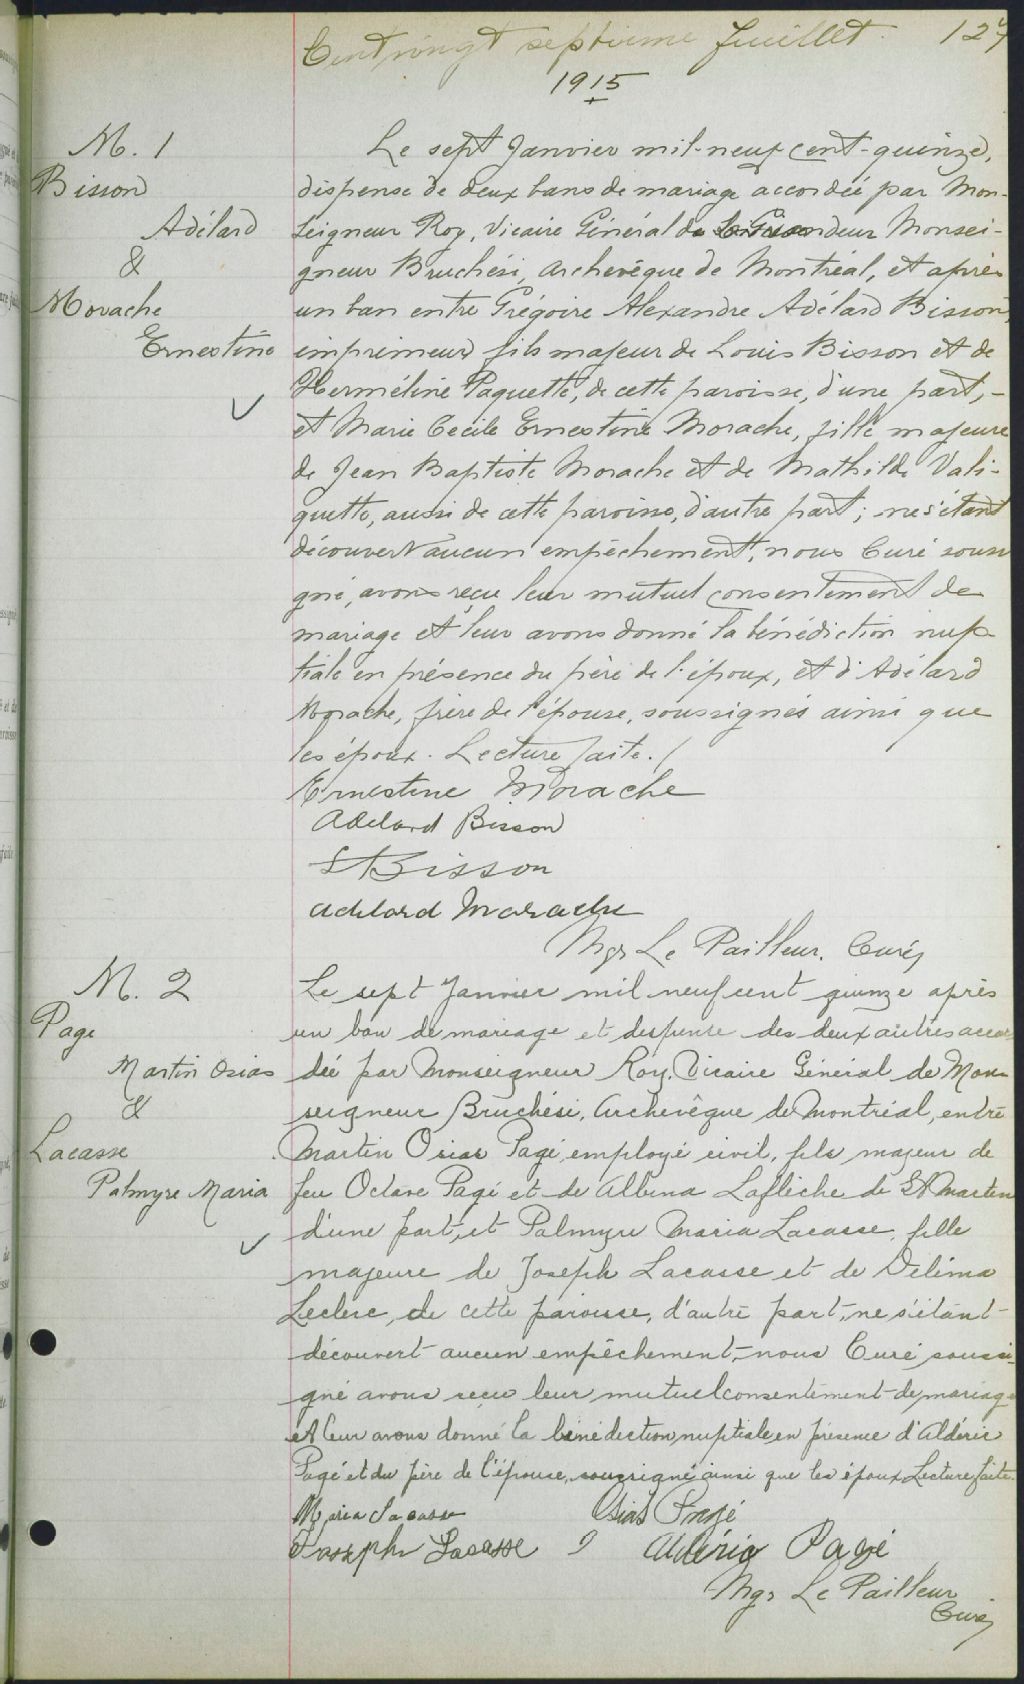 Cent vingt septième feuillet. 127
1915
M. 1
Bisson
Adélard
&
Morache
Ernestine
Le sept Janvier mil-neuf cent-quinze,
dispense de deux bans de mariage accordée par Mon-
seigneur Roy, Vicaire Général de Sa Grandeur Monsei-
gneur Bruchési, Archevêque de Montréal, et après
un ban entre Grégoire Alexandre Adélard Bisson,
imprimeur, fils majeur de Louis Bisson et de
Herméline Paquette, de cette paroisse, d'une part, -
et Marie Cécile Ernestine Morache, fille majeure
de Jean Baptiste Morache et de Mathilde Vali-
quette, aussi de cette paroisse, d'autre part; ne s'étant
découvert aucun empêchement, nous Curé soussi
gné, avons reçu leur mutuel consentement de
mariage et leur avons donné la bénédiction nup-
tiale en présence du père de l'époux, et d'Adélard
Morache, frère de l'épouse, soussignés ainsi que
les époux. Lecture faite. /
Ernestine Morache
Adelard Bisson
Ls Bisson
Adelard Morache
Mgr Le Pailleur. Curé
M. 2
Page
Martin Osias
&
Lacasse
Palmyre Maria
Le sept Janvier mil neuf cent quinze après
un ban de mariage et dispense des deux autres accor
dée par Monseigneur Roy, Vicaire Général de Mon
seigneur Bruchési, Archevêque de Montréal, entre
Martin Osias Pagé, employé civil, fils majeur de
feu Octave Pagé et de Albina Laflèche de St Martin
d'une part, et Palmyre Maria Lacasse, fille
majeure de Joseph Lacasse et de Délima
Leclerc, de cette paroisse, d'autre part, ne s'étant
découvert aucun empêchement, nous Curé soussi-
gné avons reçu leur mutuel consentement de mariage
et leur avons donné la bénédiction nuptiale en présence d'Aldéric
Pagé et du père de l'épouse, soussigné ainsi que les époux. Lecture faite.
Maria Lacasse Osias Pagé
Joseph Lacasse Aldéric Pagé
Mgr Le Pailleur
Curé